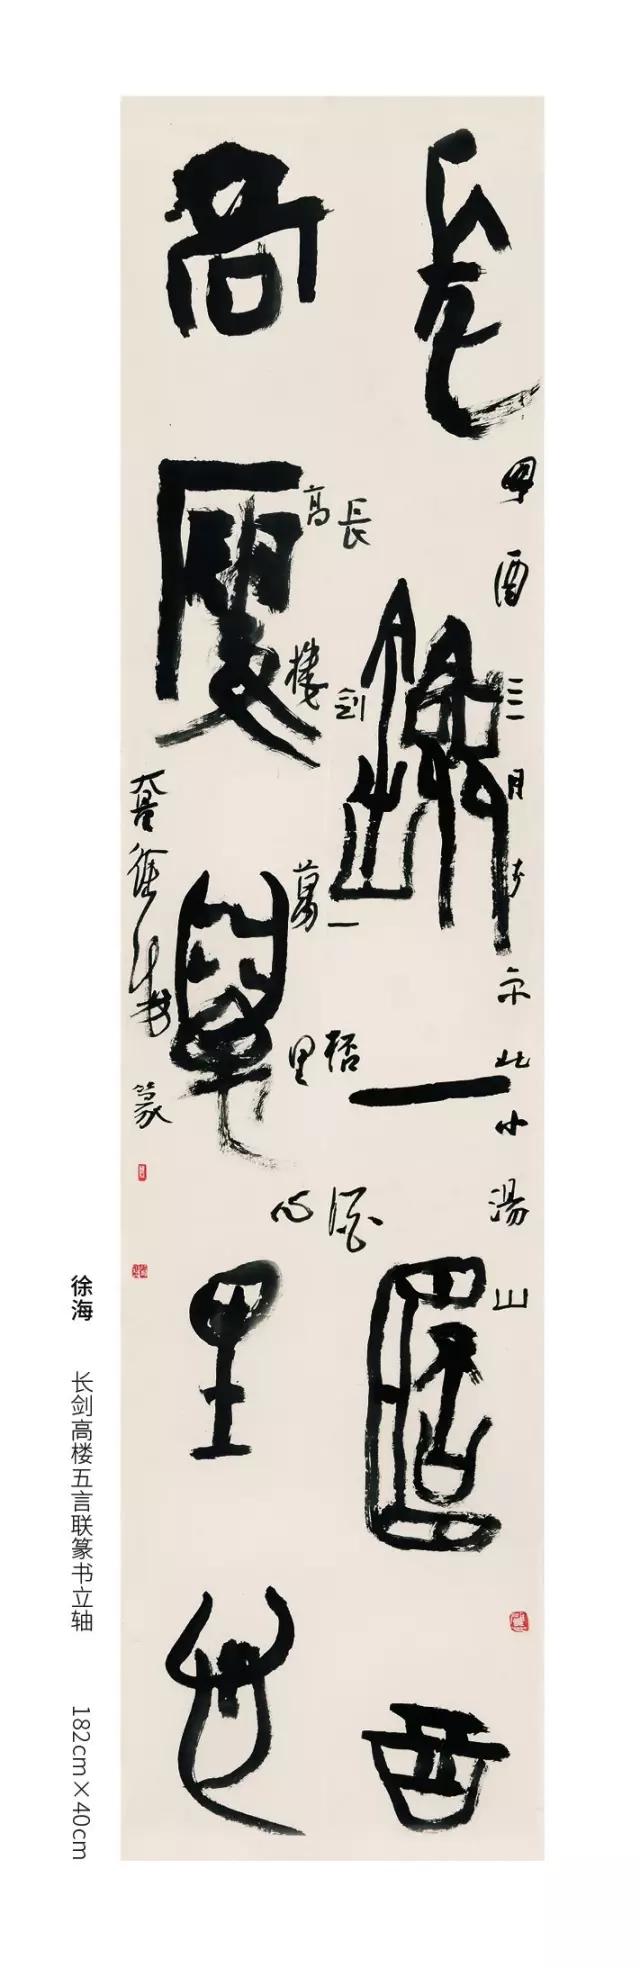 長劍一桮酒
酉三月于京北小湯山
長劍一桮酒
高樓萬里心
高樓萬里心
徐海篆
徐海 长剑高楼五言联篆书立轴 182cm×40cm